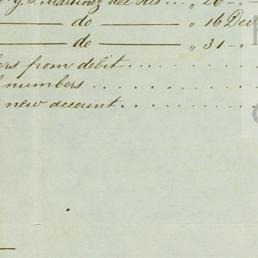 J. Martinez del Rio . . . " 20 - .
— do — " 16 Dec
— do — " 31 - .
ers from debit . . . . . . . .
numbers . . . . . . . .
new account . . . . . . . .